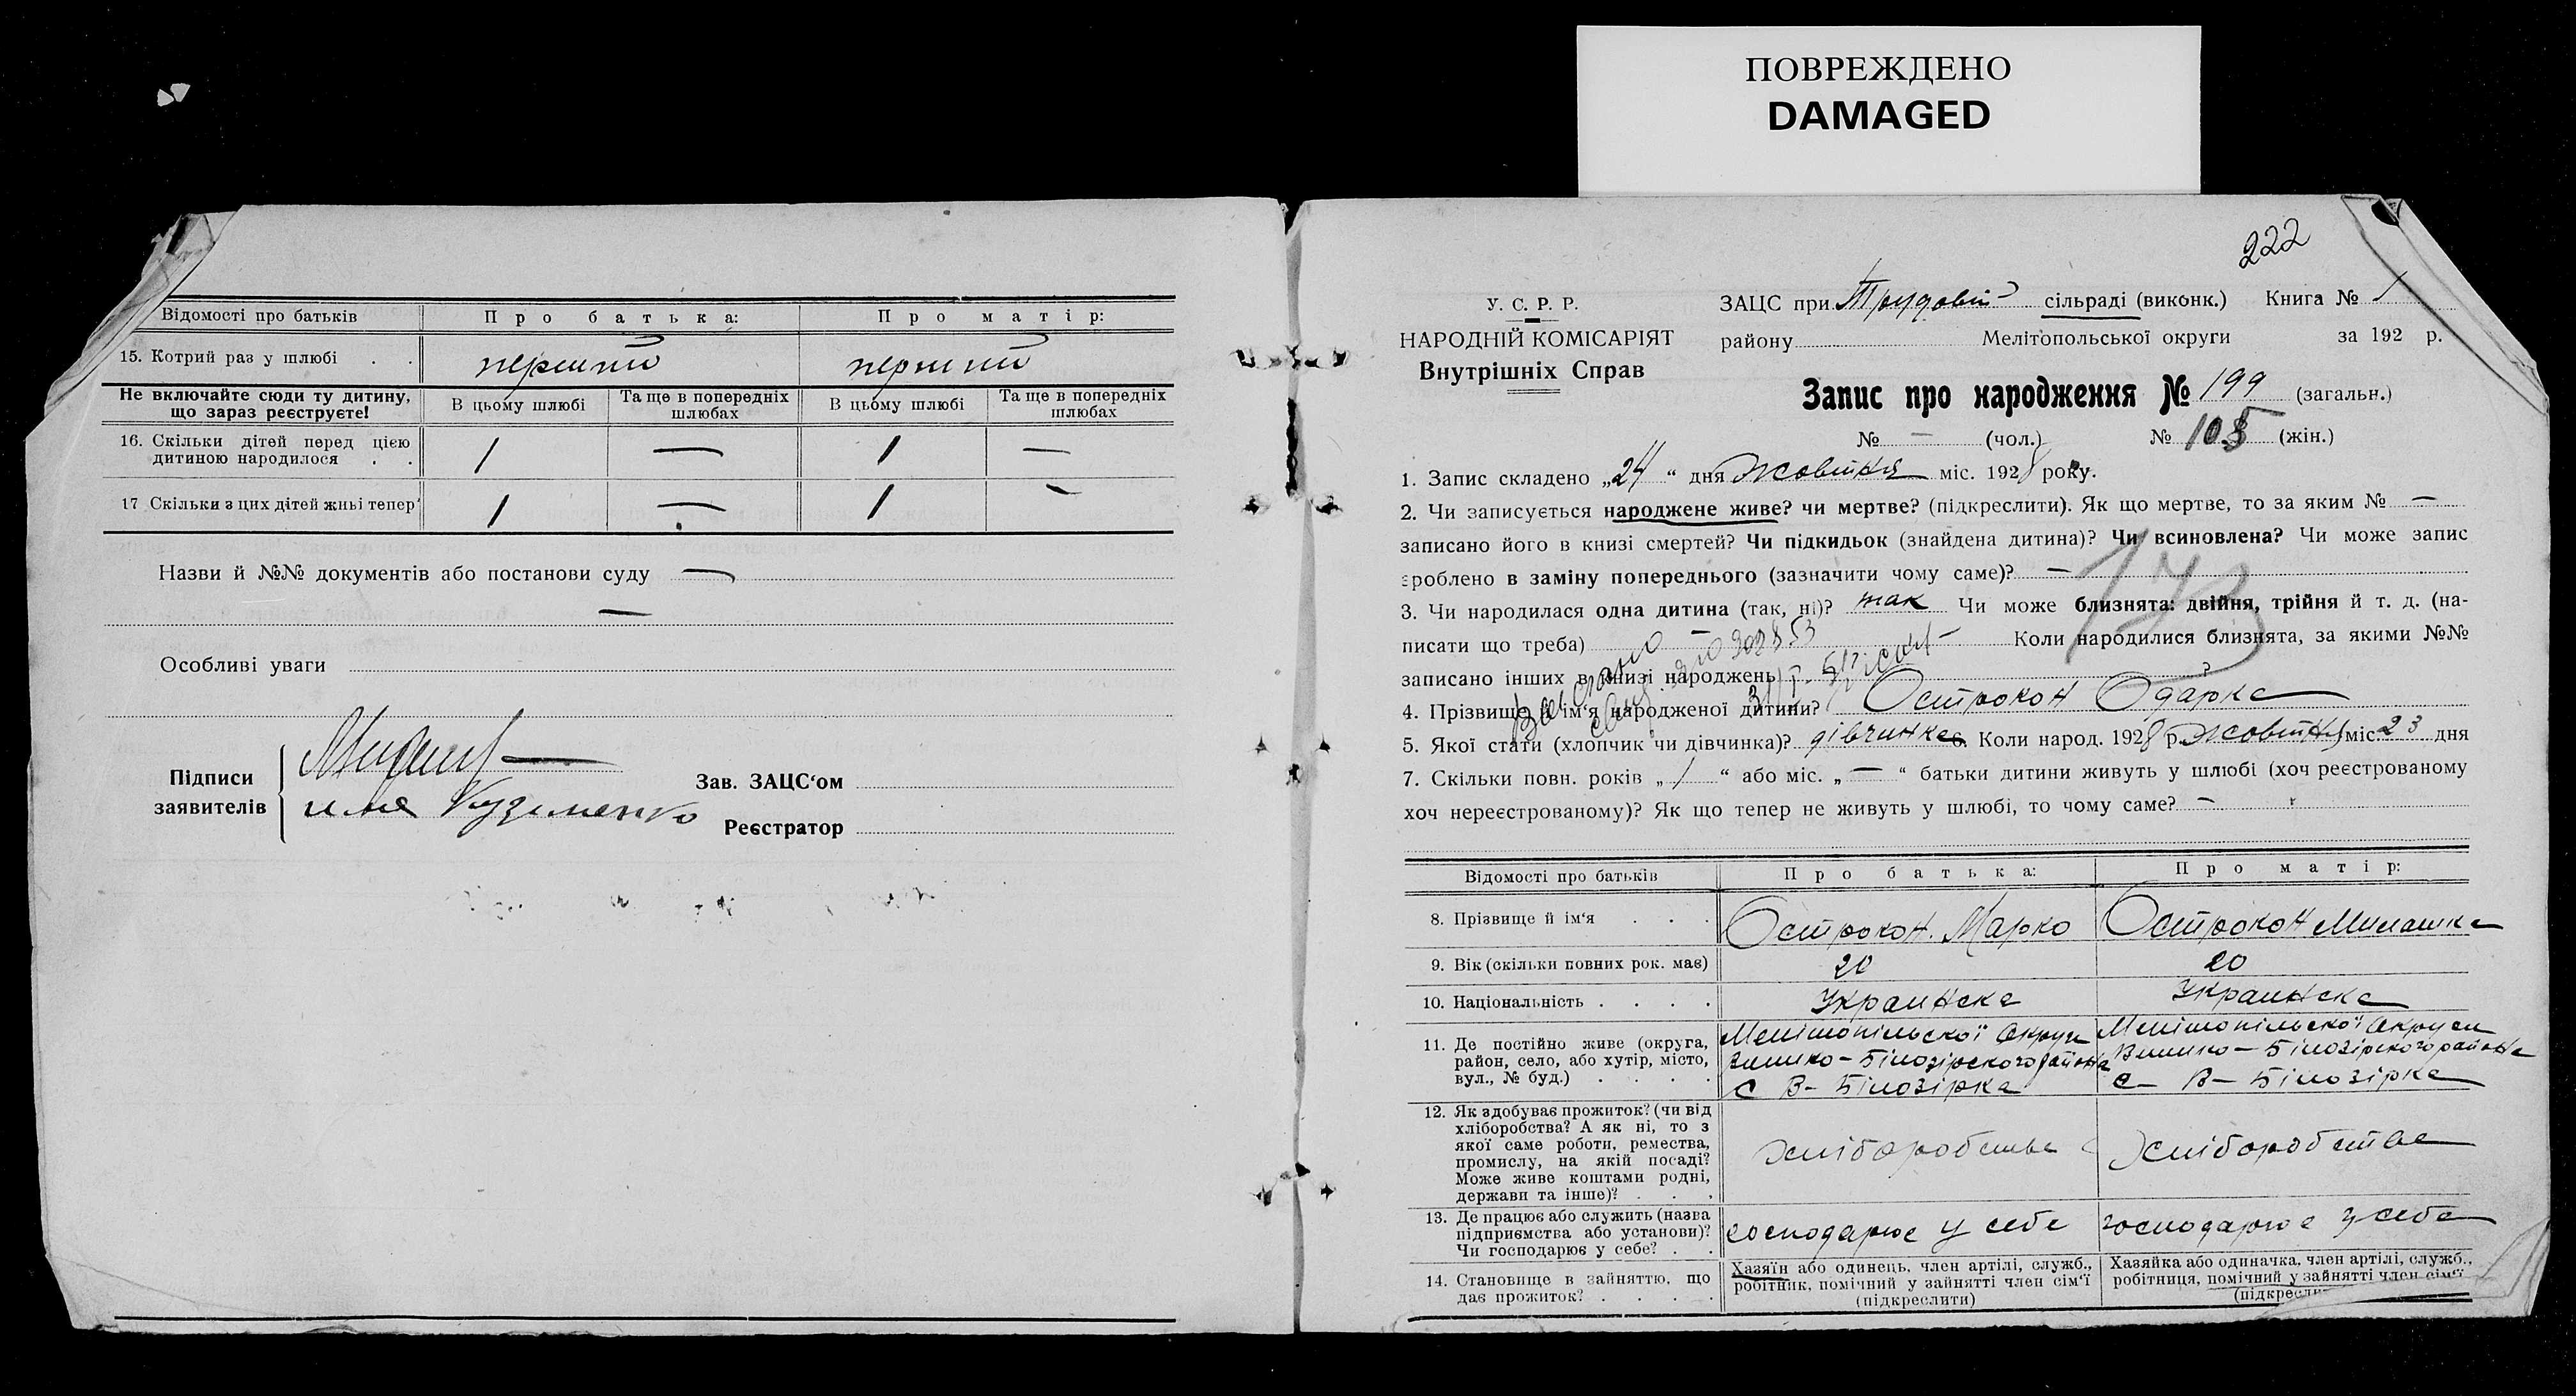 ПОВРЕЖДЕНО
DAMAGED
Відомості про батьків Про батька: Про матір:
15. Котрий раз у шлюбі . . перший перший
Не включайте сюди ту дитину, що зараз реєструєте! В цьому шлюбі Та ще в попередніх шлюбах В цьому шлюбі Та ще в попередніх шлюбах
16. Скільки дітей перед цією
дитиною народилося . . 1 — 1 —
17 Скільки з цих дітей живі тепер 1 — 1 -
Назви й №№ документів або постанови суду —
—
Особливі уваги
Підписи
заявителів
Кузименко
Зав. ЗАЦС‘ом
Реєстратор
222
У. С. Р. Р.
НАРОДНІЙ КОМІСАРІЯТ
Внутрішніх Справ
ЗАЦС при Трудовій сільраді (виконк.) Книга № 1
району Мелітопольської округи за 192 р.
Запис про народження № 199 (загальн.)
№ — (чол.) № 105 (жін.)
1. Запис складено „24“ дня Жовтня міс. 1928 року.
2. Чи записується народжене живе? чи мертве? (підкреслити). Як що мертве, то за яким № —
записано його в книзі смертей? Чи підкидьок (знайдена дитина)? Чи всиновлена? Чи може запис
зроблено в заміну попереднього (зазначити чому саме)? —
173
3. Чи народилася одна дитина (так, ні)? так Чи може близнята: двійня, трійня й т. д. (на-
писати що треба) — Коли народилися близнята, за якими №№
записано інших в книзі народжень?
4. Прізвище й ім‘я народженої дитини? Острокон Одарка
5. Якої стати (хлопчик чи дівчинка)? дівчинка 6. Коли народ. 1928 р. Жовтня міс 23 дня
7. Скільки повн. років „1“ або міс. „—“ батьки дитини живуть у шлюбі (хоч реєстрованому
хоч нереєстрованому)? Як що тепер не живуть у шлюбі, то чому саме? —
Відомості про батьків Про батька: Про матір:
8. Прізвище й ім‘я . . . Острокон Марко Острокон Милашка
9. Вік (скільки повних рок. має) 20 20
10. Національність . . . . Украинска Украинска
11. Де постійно живе (округа,
район, село, або хутір, місто,
вул., № буд.) . . . .
Мелітопільскої Округи
Велико-Білозірского района
С В-Білозірка
Мелітопільскої Округи
Велико-Білозірского района
С- В-Білозірка
12. Як здобуває прожиток? (чи від
хліборобства? А як ні, то з
якої саме роботи, ремества,
промислу, на якій посаді?
Може живе коштами родні,
держави та інше)? . . .
Хліборобства Хліборобства
13. Де працює або служить (назва
підприємства або установи)?
Чи господарює у себе? . .
господарює у себе господарює у себе
14. Становище в зайняттю, що
дає прожиток? . . . .
Хазяїн або одинець, член артілі, служб.,
робітник, помічний у зайнятті член сім‘ї
(підкреслити)
Хазяйка або одиначка, член артілі, служб.,
робітниця, помічний у зайнятті член сім‘ї